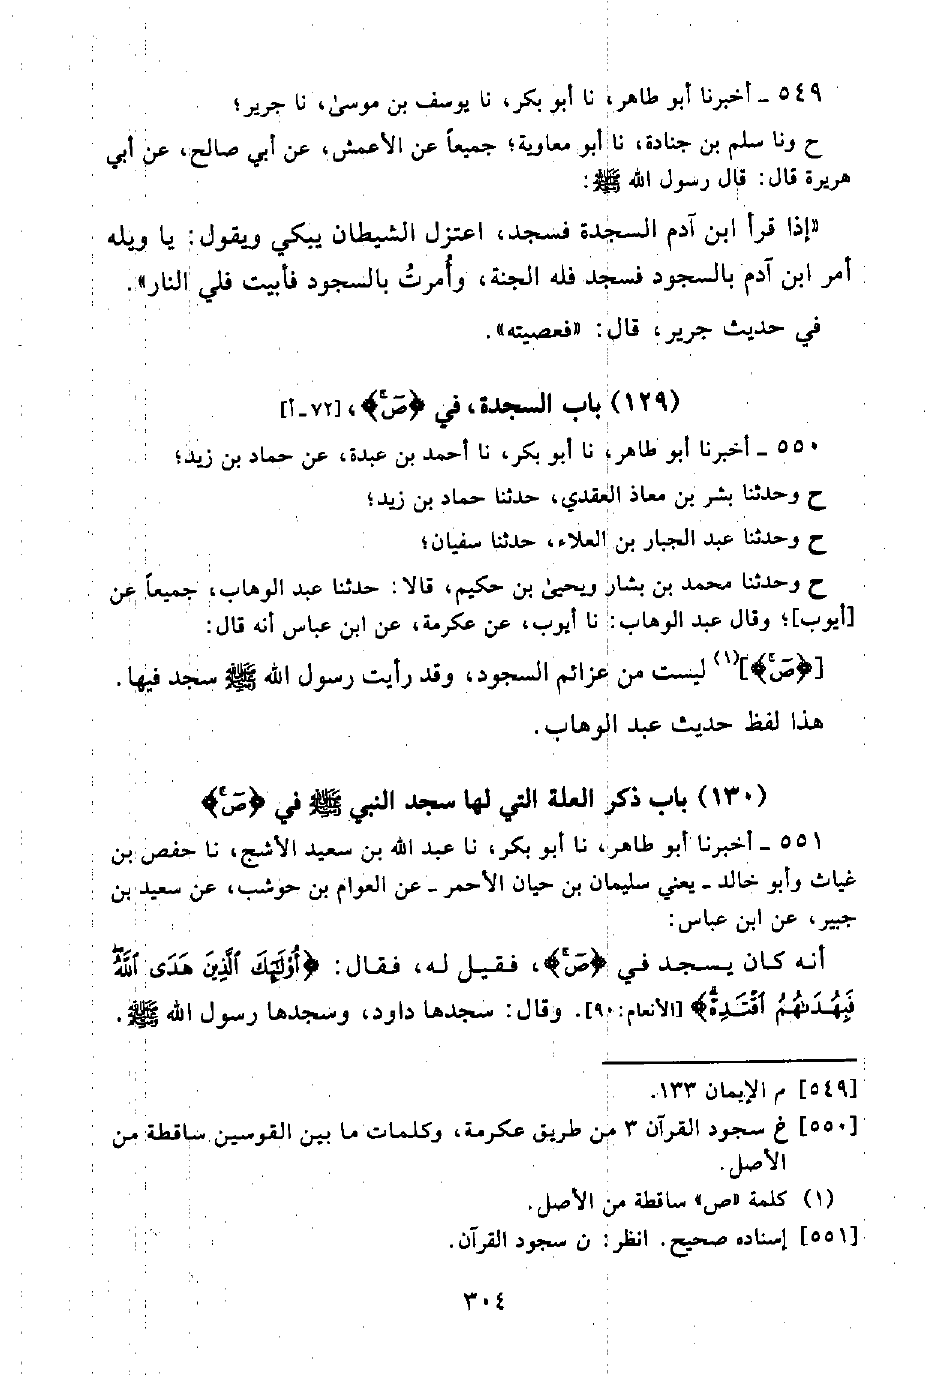 ٥٤٩ ـ أخبرنا أبو طاهر، نا أبو بكر، نا يوسف بن موسىٰ، نا جرير؛
ح ونا سلم بن جنادة، نا أبو معاوية؛ جميعاً عن الأعمش، عن أبي صالح، عن أبي
هريرة قال: قال رسول الله ﷺ:
«إذا قرأ ابن آدم السجدة فسجد، اعتزل الشيطان يبكي ويقول: يا ويله
أمر ابن آدم بالسجود فسجد فله الجنة، وأُمرتُ بالسجود فأبيت فلي النار».
في حديث جرير، قال: «فعصيته».
(١٢٩) باب السجدة، في ﴿صۤ﴾، [٧٢ـأ]
٥٥٠ ـ أخبرنا أبو طاهر، نا أبو بكر، نا أحمد بن عبدة، عن حماد بن زيد؛
ح وحدثنا بشر بن معاذ العقدي، حدثنا حماد بن زيد؛
ح وحدثنا عبد الجبار بن العلاء، حدثنا سفيان؛
ح وحدثنا محمد بن بشار ويحيىٰ بن حكيم، قالا: حدثنا عبد الوهاب، جميعاً عن
[أيوب]؛ وقال عبد الوهاب: نا أيوب، عن عكرمة، عن ابن عباس أنه قال:
[﴿صۤ﴾](١) ليست من عزائم السجود، وقد رأيت رسول الله ﷺ سجد فيها.
هذا لفظ حديث عبد الوهاب.
(١٣٠) باب ذكر العلة التي لها سجد النبي ﷺ في ﴿صۤ﴾
٥٥١ ـ أخبرنا أبو طاهر، نا أبو بكر، نا عبد الله بن سعيد الأشج، نا حفص بن
غياث وأبو خالد ـ يعني سليمان بن حيان الأحمر ـ عن العوام بن حوشب، عن سعيد بن
جبير، عن ابن عباس:
أنه كان يسجد في ﴿صۤ﴾، فقيل له، فقال: ﴿أُوْلَٰٓئِكَ ٱلَّذِينَ هَدَى ٱللَّهُۖ
فَبِهُدَىٰهُمُ ٱقْتَدِهْۗ﴾ [الأنعام: ٩٠]. وقال: سجدها داود، وسجدها رسول الله ﷺ.
[٥٤٩] م الإيمان ١٣٣.
[٥٥٠] خ سجود القرآن ٣ من طريق عكرمة، وكلمات ما بين القوسين ساقطة من
الأصل.
(١) كلمة «ص» ساقطة من الأصل.
[٥٥١] إسناده صحيح. انظر: ن سجود القرآن.
٣٠٤